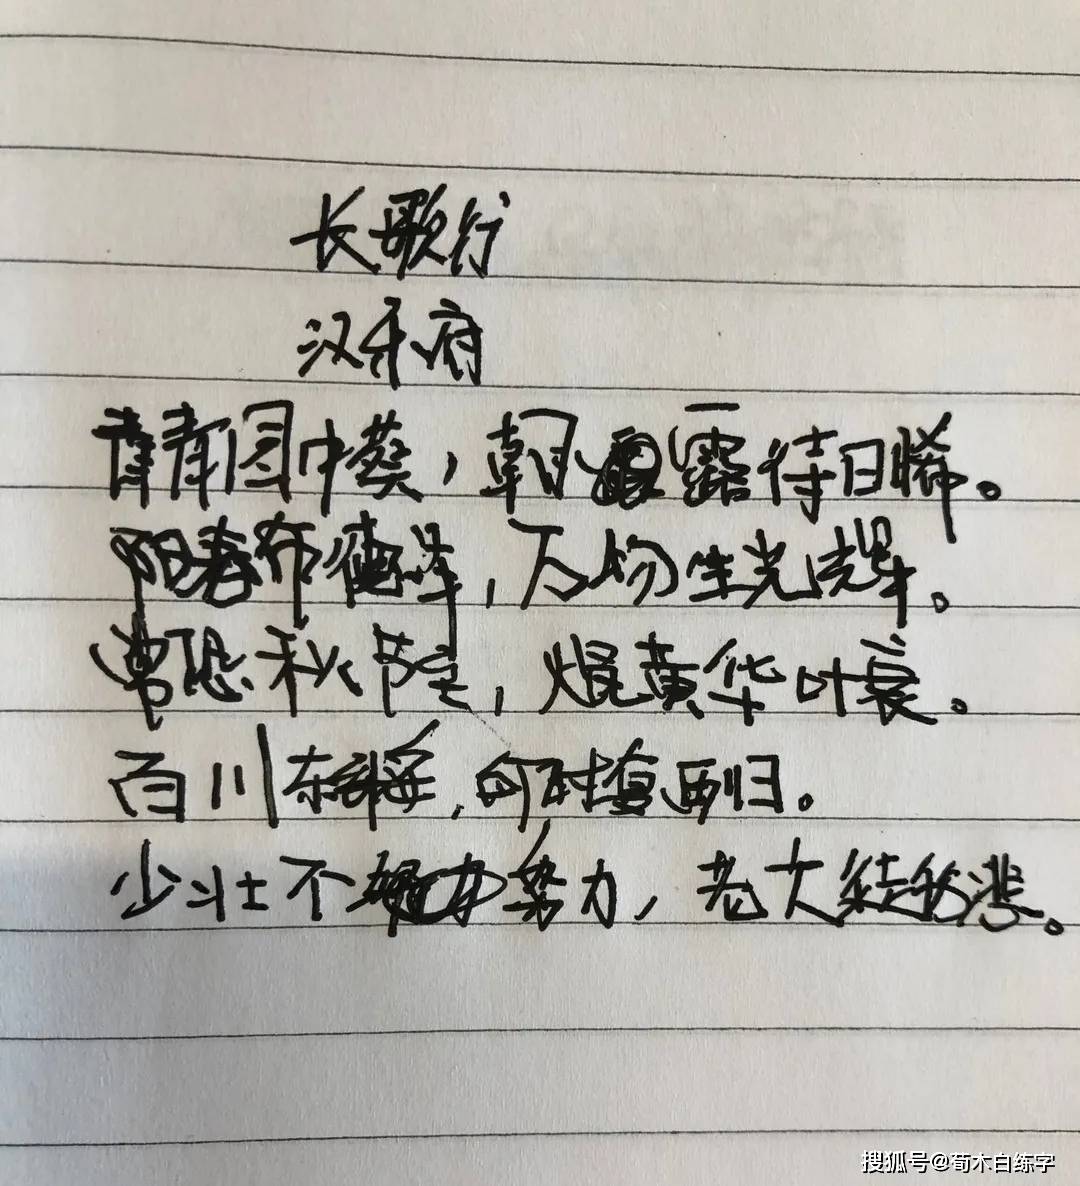 长歌行
汉乐府
青青园中葵，朝露待日晞。
阳春布德泽，万物生光辉。
常恐秋节至，焜黄华叶衰。
百川东到海，何时复西归。
少壮不努力，老大徒伤悲。
搜狐号@荀木白练字